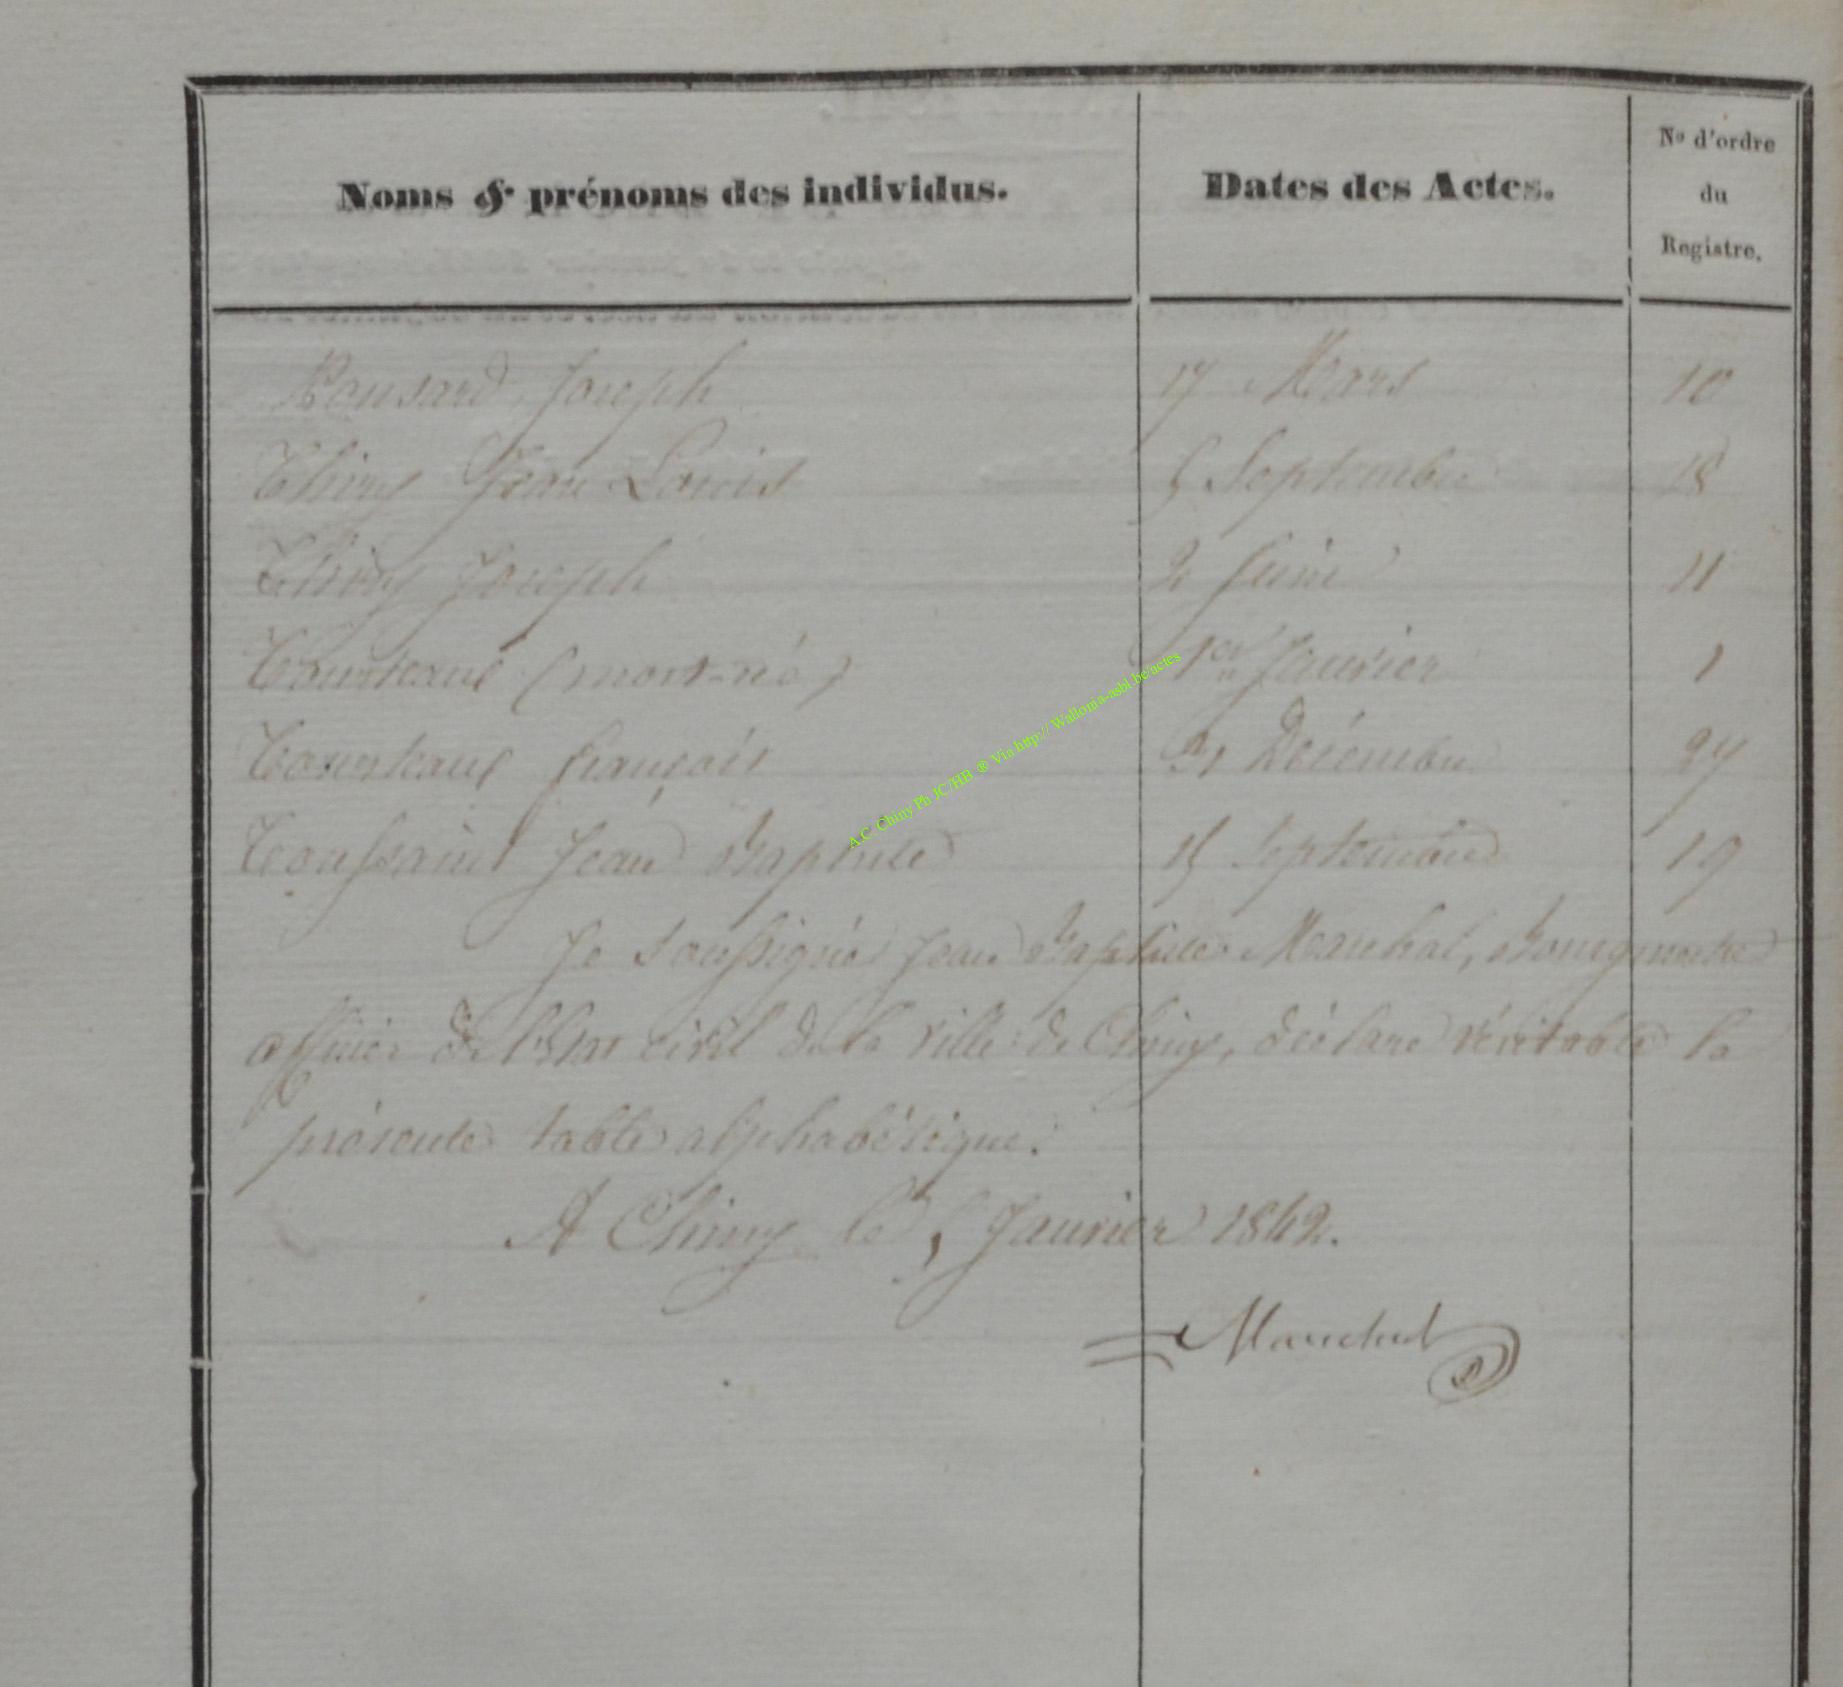 Noms & prénoms des individus. Dates des Actes. No d'ordre du Registre.
Ponsard Joseph 17 Mars 10
Thiry Jean Louis 5 Septembre 18
Thiry Joseph 2 Juin 11
Tourteaux (mort-né) 1er Janvier 1
Tourteaux François 21 Décembre 27
Toussaint Jean Baptiste 15 Septembre 19
Je soussigné Jean Baptiste Maréchal, Bourgmestre
officier de l'état civil de la ville de Chiny, déclare véritable la
présente table alphabétique.
A Chiny le 5 Janvier 1842.
Maréchal
A.C. Chiny Ph JC/HB ® Via http:// Wallonia-asbl.be/actes